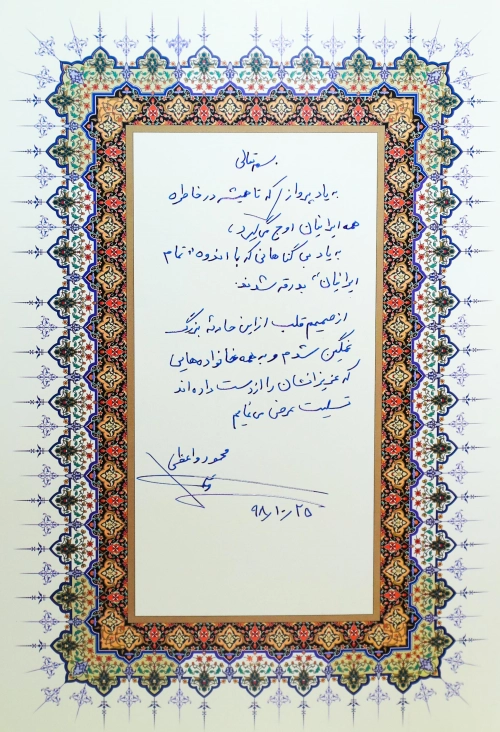 بسمه تعالی
به یاد پروازی که تا همیشه در خاطره
همه ایرانیان اوج می‌گیرد،
به یاد بی گناهانی که با اندوه "تمام
ایرانیان" بدرقه شدند.
از صمیم قلب از این حادثه بزرگ
غمگین شدم و به همه خانواده‌هایی
که عزیزانشان را از دست داده‌اند
تسلیت عرض می‌نمایم
محمود واعظی
۹۸٫۱۰٫۲۵